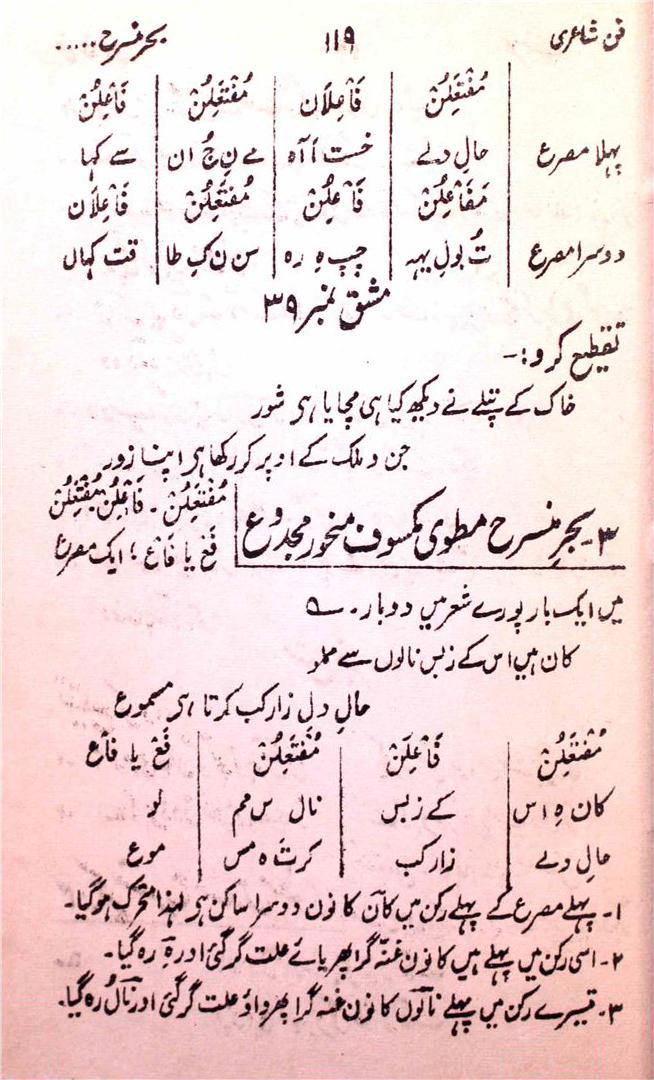 فن شاعری ۱۱۹ بحر منسرح.....
مُفْتَعِلُنْ فَاْعِلَاْن مُفْتَعِلُنْ فَاْعِلُنْ
پہلا مصرع حالِ دلے خست اَ آہ مے نِ جُ ان سے کہا
مَفَاْعِلُنْ فَاْعِلُنْ مُفْتَعِلُنْ فَاْعِلَاْن
دوسرا مصرع تُ بولِ یہہ چپ ہِ رہ سن ن کِ طا قت کہاں
مشق نمبر ۳۹
تقطیع کرو:-
خاک کے پتلے نے دیکھ کیا ہی مچایا ہر شور
جن و ملک کے اوپر کر رکھا ہر اپنا زور
۳- بحرِ منسرح مطوی مکسوف منحور مجدوع مُفْتَعِلُنْ۔ فَاْعِلُنْ مُفْتَعِلُنْ
فَعْ یا فَاْع ؛ ایک مصرعے
میں ایک بار پورے شعر میں دوبار۔ ؎
کان ہیں اس کے زبس نالوں سے مملو
حالِ دلِ زار کب کرتا ہر مسموع
مُفْتَعِلُنْ فَاْعِلُنْ مُفْتَعِلُنْ فَعْ یا فَاْع
کان ہِ اس کے زبس نال س مم لو
حالِ دلے زار کب کرتَ ہ مس موع
۱- پہلے مصرع کے پہلے رکن میں کان کا نون دوسرا ساکن ہر لہذا متحرک ہوگیا۔
۲- اسی رکن میں پہلے ہیں کا نون غنّہ گرا پھر یائے علت گر گئی اور ہِ رہ گیا۔
۳- تیسرے رکن میں پہلے نالوں کا نون غنہ گرا پھر واؤ علت گر گئی اور نالُ رہ گیا۔